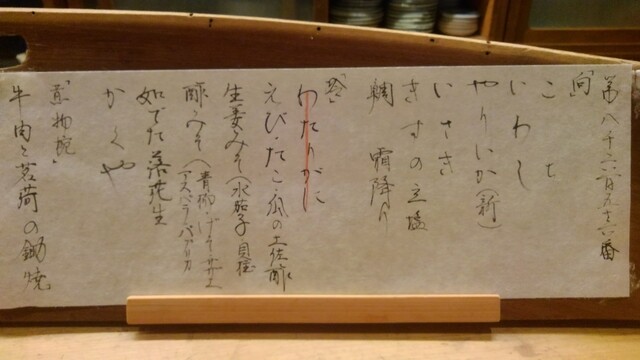 第八千六百九十六番
「向」
こち
いわし
やりいか(新)
いさき
きすの立塩
鯛 霜降り
「冷」
わたりがに
えび・たこ・瓜の土佐酢
生姜みそ(水茄子・貝柱
酢みそ(青柳・げそ・
アスペラ・パプリカ
茹でた落花生
かくや
「煮物椀」
牛肉と茗荷の鋤焼